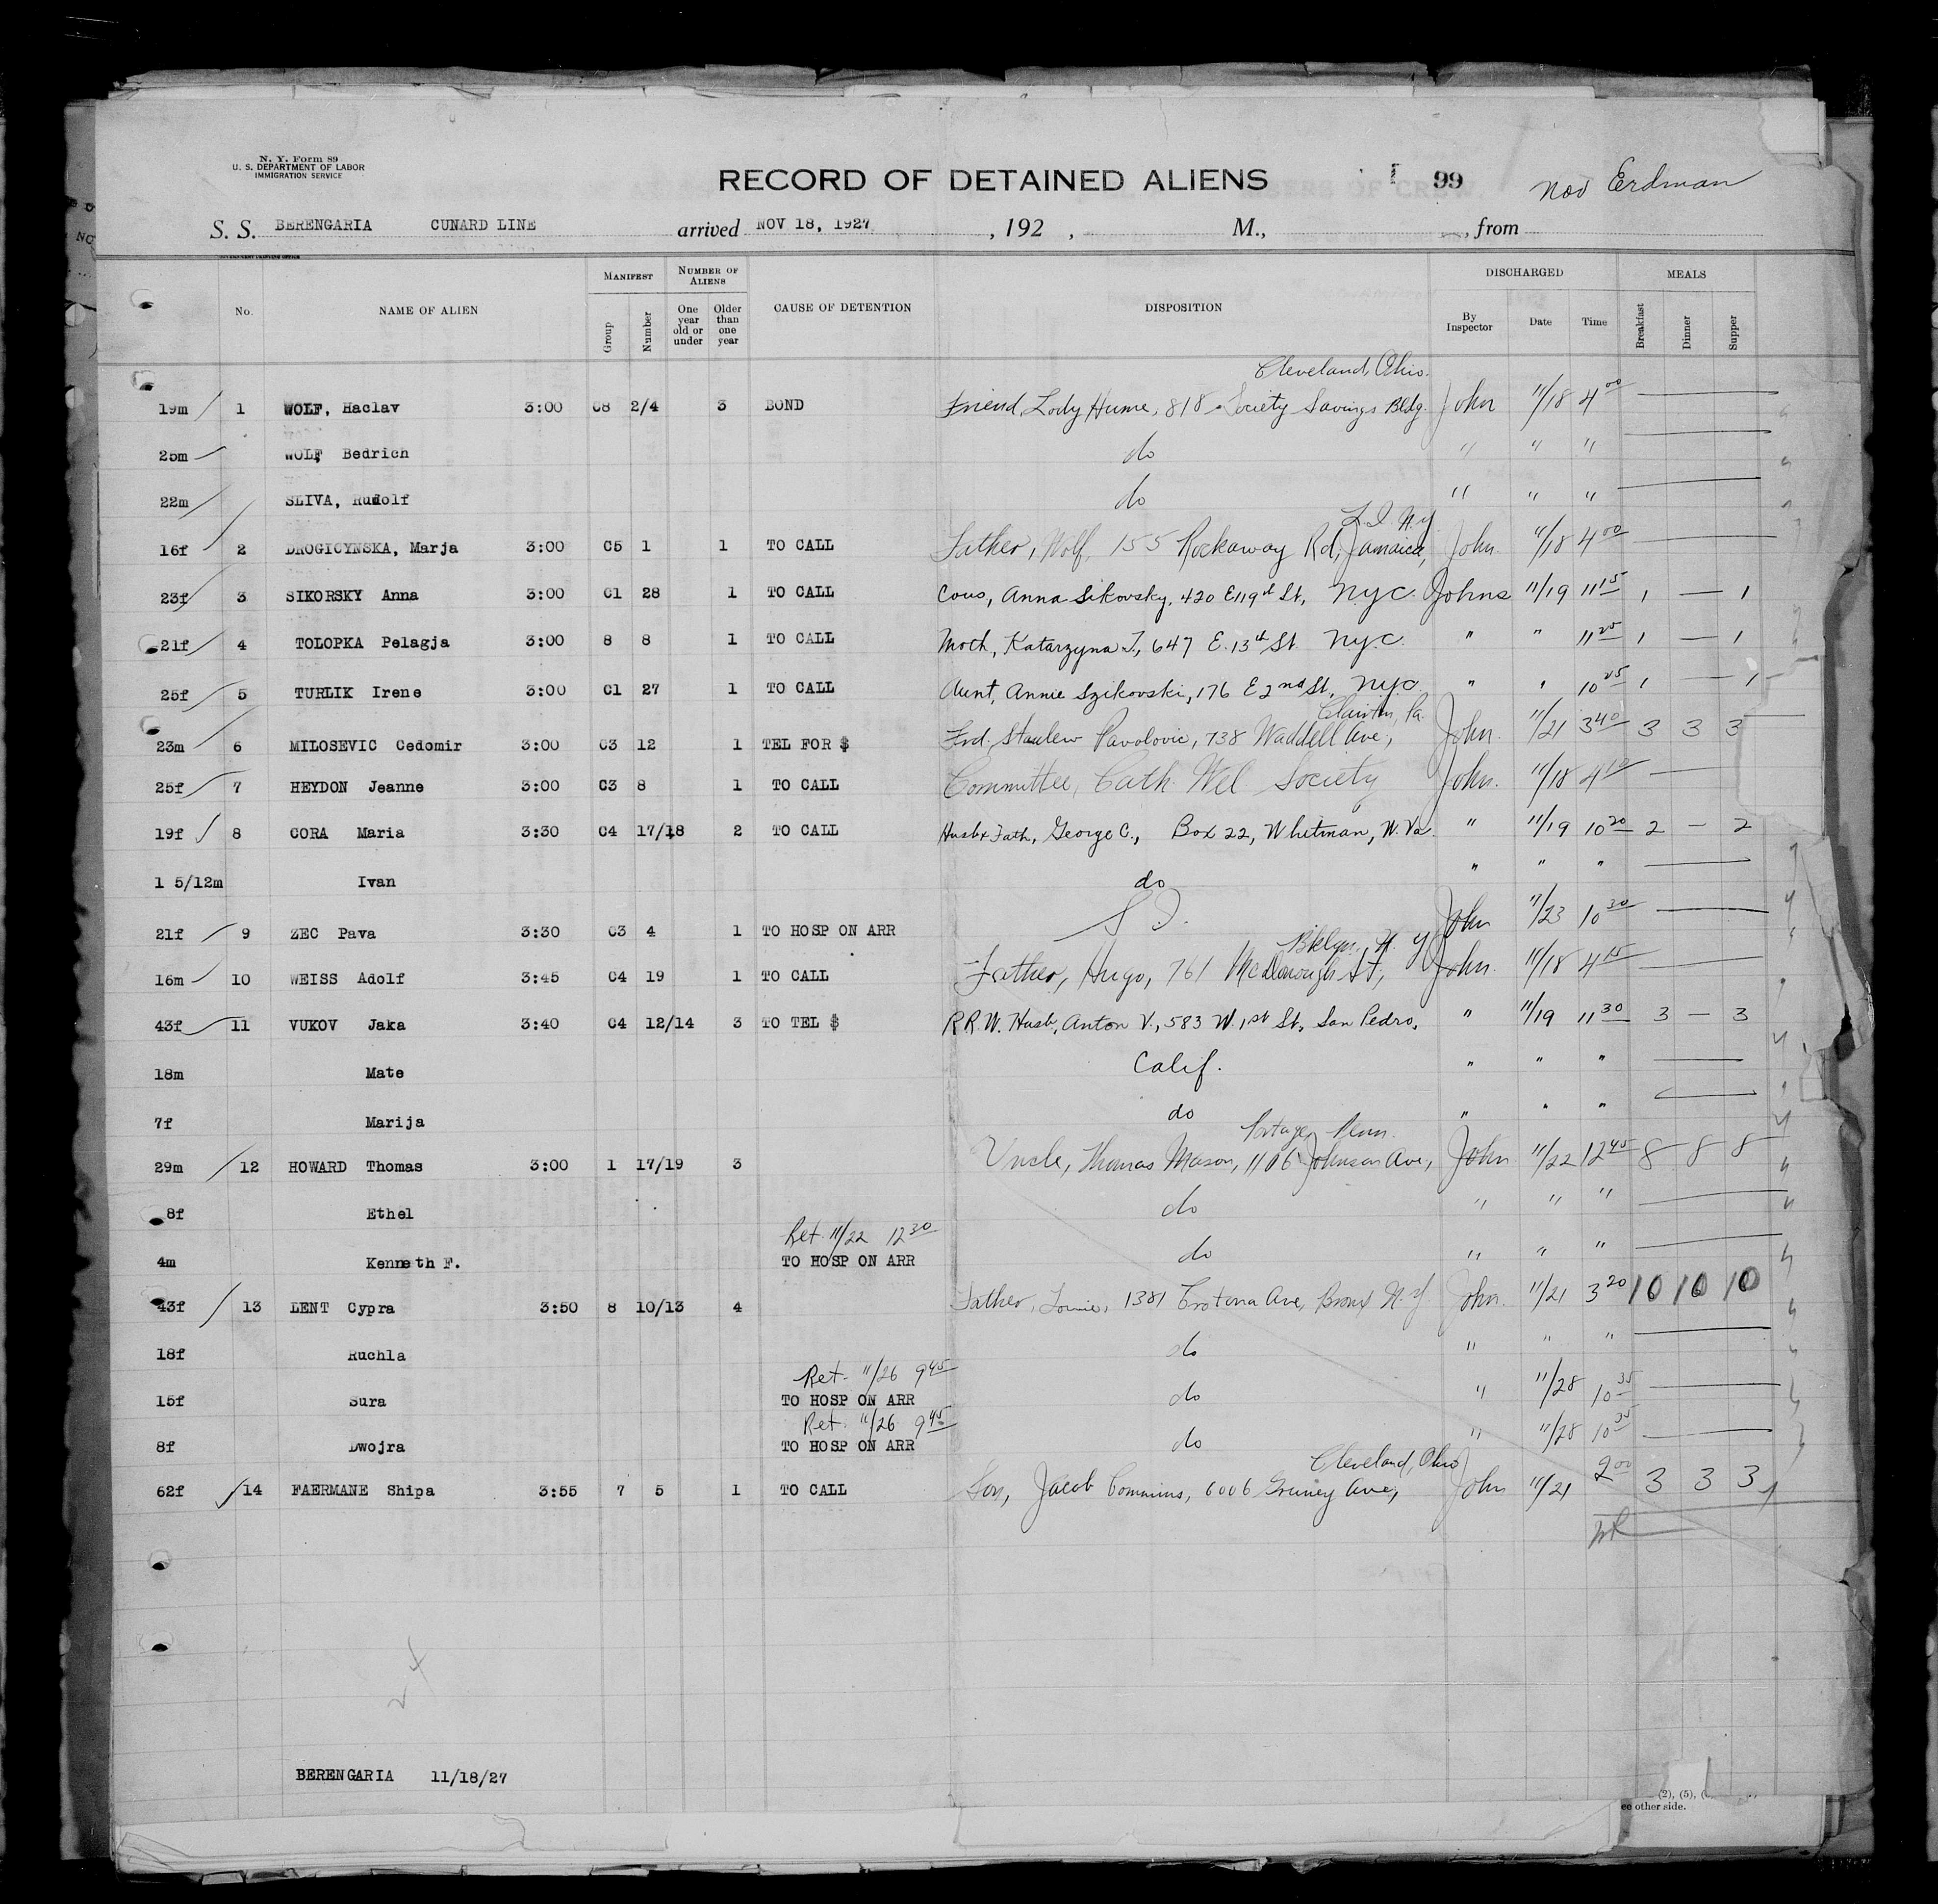 N. Y. Form 89
U. S. DEPARTMENT OF LABOR
IMMIGRATION SERVICE
RECORD OF DETAINED ALIENS 99 Nov Erdman
S. S. BERENGARIA CUNARD LINE arrived NOV 18, 1927, 192 , M., , from
MANIFEST NUMBER OF ALIENS DISCHARGED MEALS
No. NAME OF ALIEN Group Number One year old or under Older than one year CAUSE OF DETENTION DISPOSITION By Inspector Date Time Breakfast Dinner Supper
Cleveland, Ohio.
19m 1 WOLF, Haclav 3:00 C8 2/4 3 BOND Friend, Lody Hume, 818 Society Savings Bldg. John 11/18 4 00
25m WOLF Bedrich do " " "
22m SLIVA, Rudolf do " " "
L. I. N.Y.
16f 2 DROGICYNSKA, Marja 3:00 C5 1 1 TO CALL Father, Wolf, 155 Rockaway Rd, Jamaica, John 11/18 4 00
23f 3 SIKORSKY Anna 3:00 C1 28 1 TO CALL Cous, Anna Sikovsky, 420 E 119th St, NYC Johns 11/19 11 15 1 — 1
21f 4 TOLOPKA Pelagja 3:00 8 8 1 TO CALL Moth, Katarzyna T, 647 E. 13th St. NYC. " " 11 25 1 — 1
25f 5 TURLIK Irene 3:00 C1 27 1 TO CALL Aunt, Annie Szikovski, 176 E 2nd St, NYC " " 10 25 1 — 1
Clairton, Pa.
23m 6 MILOSEVIC Cedomir 3:00 C3 12 1 TEL FOR $ Frd. Stanlew Pavolovic, 738 Waddell Ave, John. 11/21 3 40 3 3 3
25f 7 HEYDON Jeanne 3:00 C3 8 1 TO CALL Committee, Cath. Wel Society John. 11/18 4 10
19f 8 CORA Maria 3:30 C4 17/18 2 TO CALL Husb & Fath, George C., Box 22, Whitman, W. Va. " 11/19 10 20 2 — 2
1 5/12m Ivan do " " "
21f 9 ZEC Pava 3:30 C3 4 1 TO HOSP ON ARR S I. John 11/23 10 30
Bklyn, N. Y
16m 10 WEISS Adolf 3:45 C4 19 1 TO CALL Father, Hugo, 761 McDonough St, John. 11/18 4 15
43f 11 VUKOV Jaka 3:40 C4 12/14 3 TO TEL $ R.R.W. Husb, Anton V., 583 W. 1st St, San Pedro, " 11/19 11 30 3 — 3
18m Mate Calif. " " "
7f Marija do " " "
Portage, Penn.
29m 12 HOWARD Thomas 3:00 1 17/19 3 Uncle, Thomas Mason, 1106 Johnson Ave, John 11/22 12 45 8 8 8
8f Ethel do " " "
Ret. 11/22 12 30
4m Kenneth F. TO HOSP ON ARR do " " "
43f 13 LENT Cypra 3:50 8 10/13 4 Father, Louie, 1381 Crotona Ave, Bronx N.Y John. 11/21 3 20 10 10 10
18f Ruchla do " " "
Ret. 11/26 9 45
15f Sura TO HOSP ON ARR do " 11/28 10 35
Ret. 11/26 9 45
8f Dwojra TO HOSP ON ARR do " 11/28 10 35
Cleveland, Ohio
62f 14 FAERMANE Shipa 3:55 7 5 1 TO CALL Son, Jacob Commins, 6006 Ave, John 11/21 2 00 3 3 3
24
BERENGARIA 11/18/27
(2), (5),
ee other side.